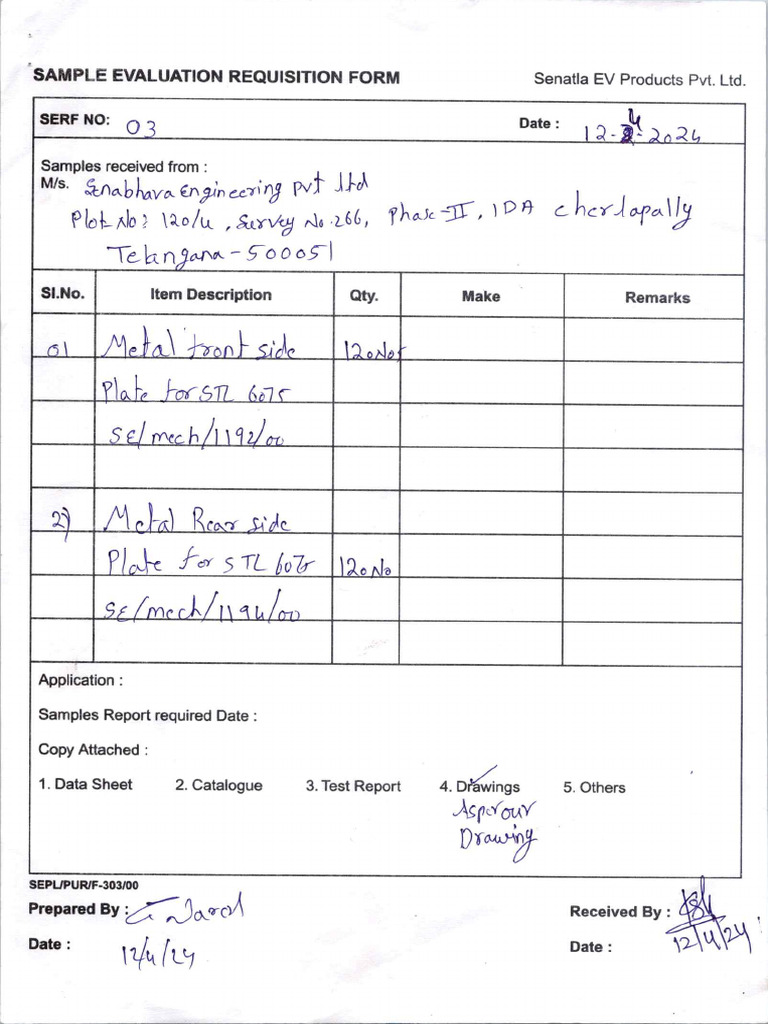 SAMPLE EVALUATION REQUISITION FORM Senatla EV Products Pvt. Ltd.
SERF NO: 03 Date : 12-4-2024
Samples received from :
M/s. Senabhava Engineering pvt ltd
Plot No: 120/4, Survey No. 266, Phase-II, IDA cherlapally
Telangana-500051
Sl.No. Item Description Qty. Make Remarks
01 Metal front side 120Nos
Plate for STL 6075
SE/mech/1192/00
2) Metal Rear side
Plate for STL 6075 120No
SE/mech/1194/00
Application :
Samples Report required Date :
Copy Attached :
1. Data Sheet 2. Catalogue 3. Test Report 4. Drawings 5. Others
As per our
Drawing
SEPL/PUR/F-303/00
Prepared By : Received By :
Date : 12/4/24 Date : 12/4/24